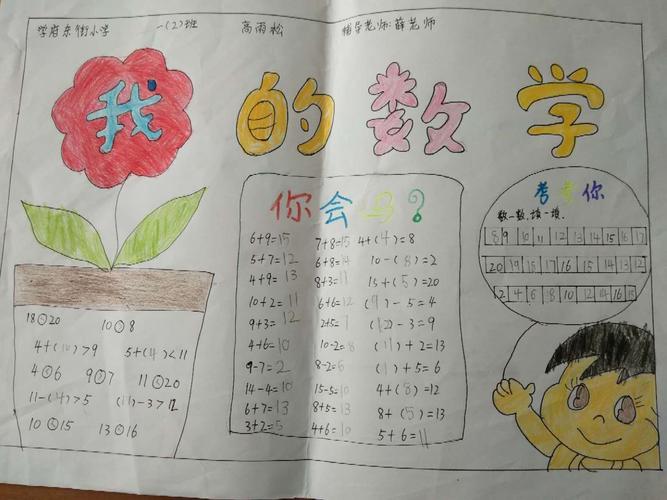 学府东街小学 一(2)班 高雨松 辅导老师:薛老师
我的数学
你会吗?
6+9=15 7+8=15 4+(4)=8
5+7=12 6+8=14 10-(8)=2
4+9=13 8+3=11 13+(5)=20
10+2=11 6+6=12 (9)-5=4
9+3=12 2+5=7 (12)-3=9
4+6=10 10-2=8 (11)+2=13
9-7=2 8-2=6 (1)+5=6
14-4=10 15-5=10 4+(8)=12
6+7=13 8+5=13 8+(5)=13
3+2=5 4+6=10 5+6=11
考考你
数一数,填一填.
8 9 10 11 12 13 14 15 16 17
20 19 18 17 16 15 14 13 12
2 4 6 8 10 12 14 16 18
18 20 10 8
4+(10)>9 5+(4)<11
4 6 9 7 11 20
11-(4)>5 (11)-3>12
10 15 13 16